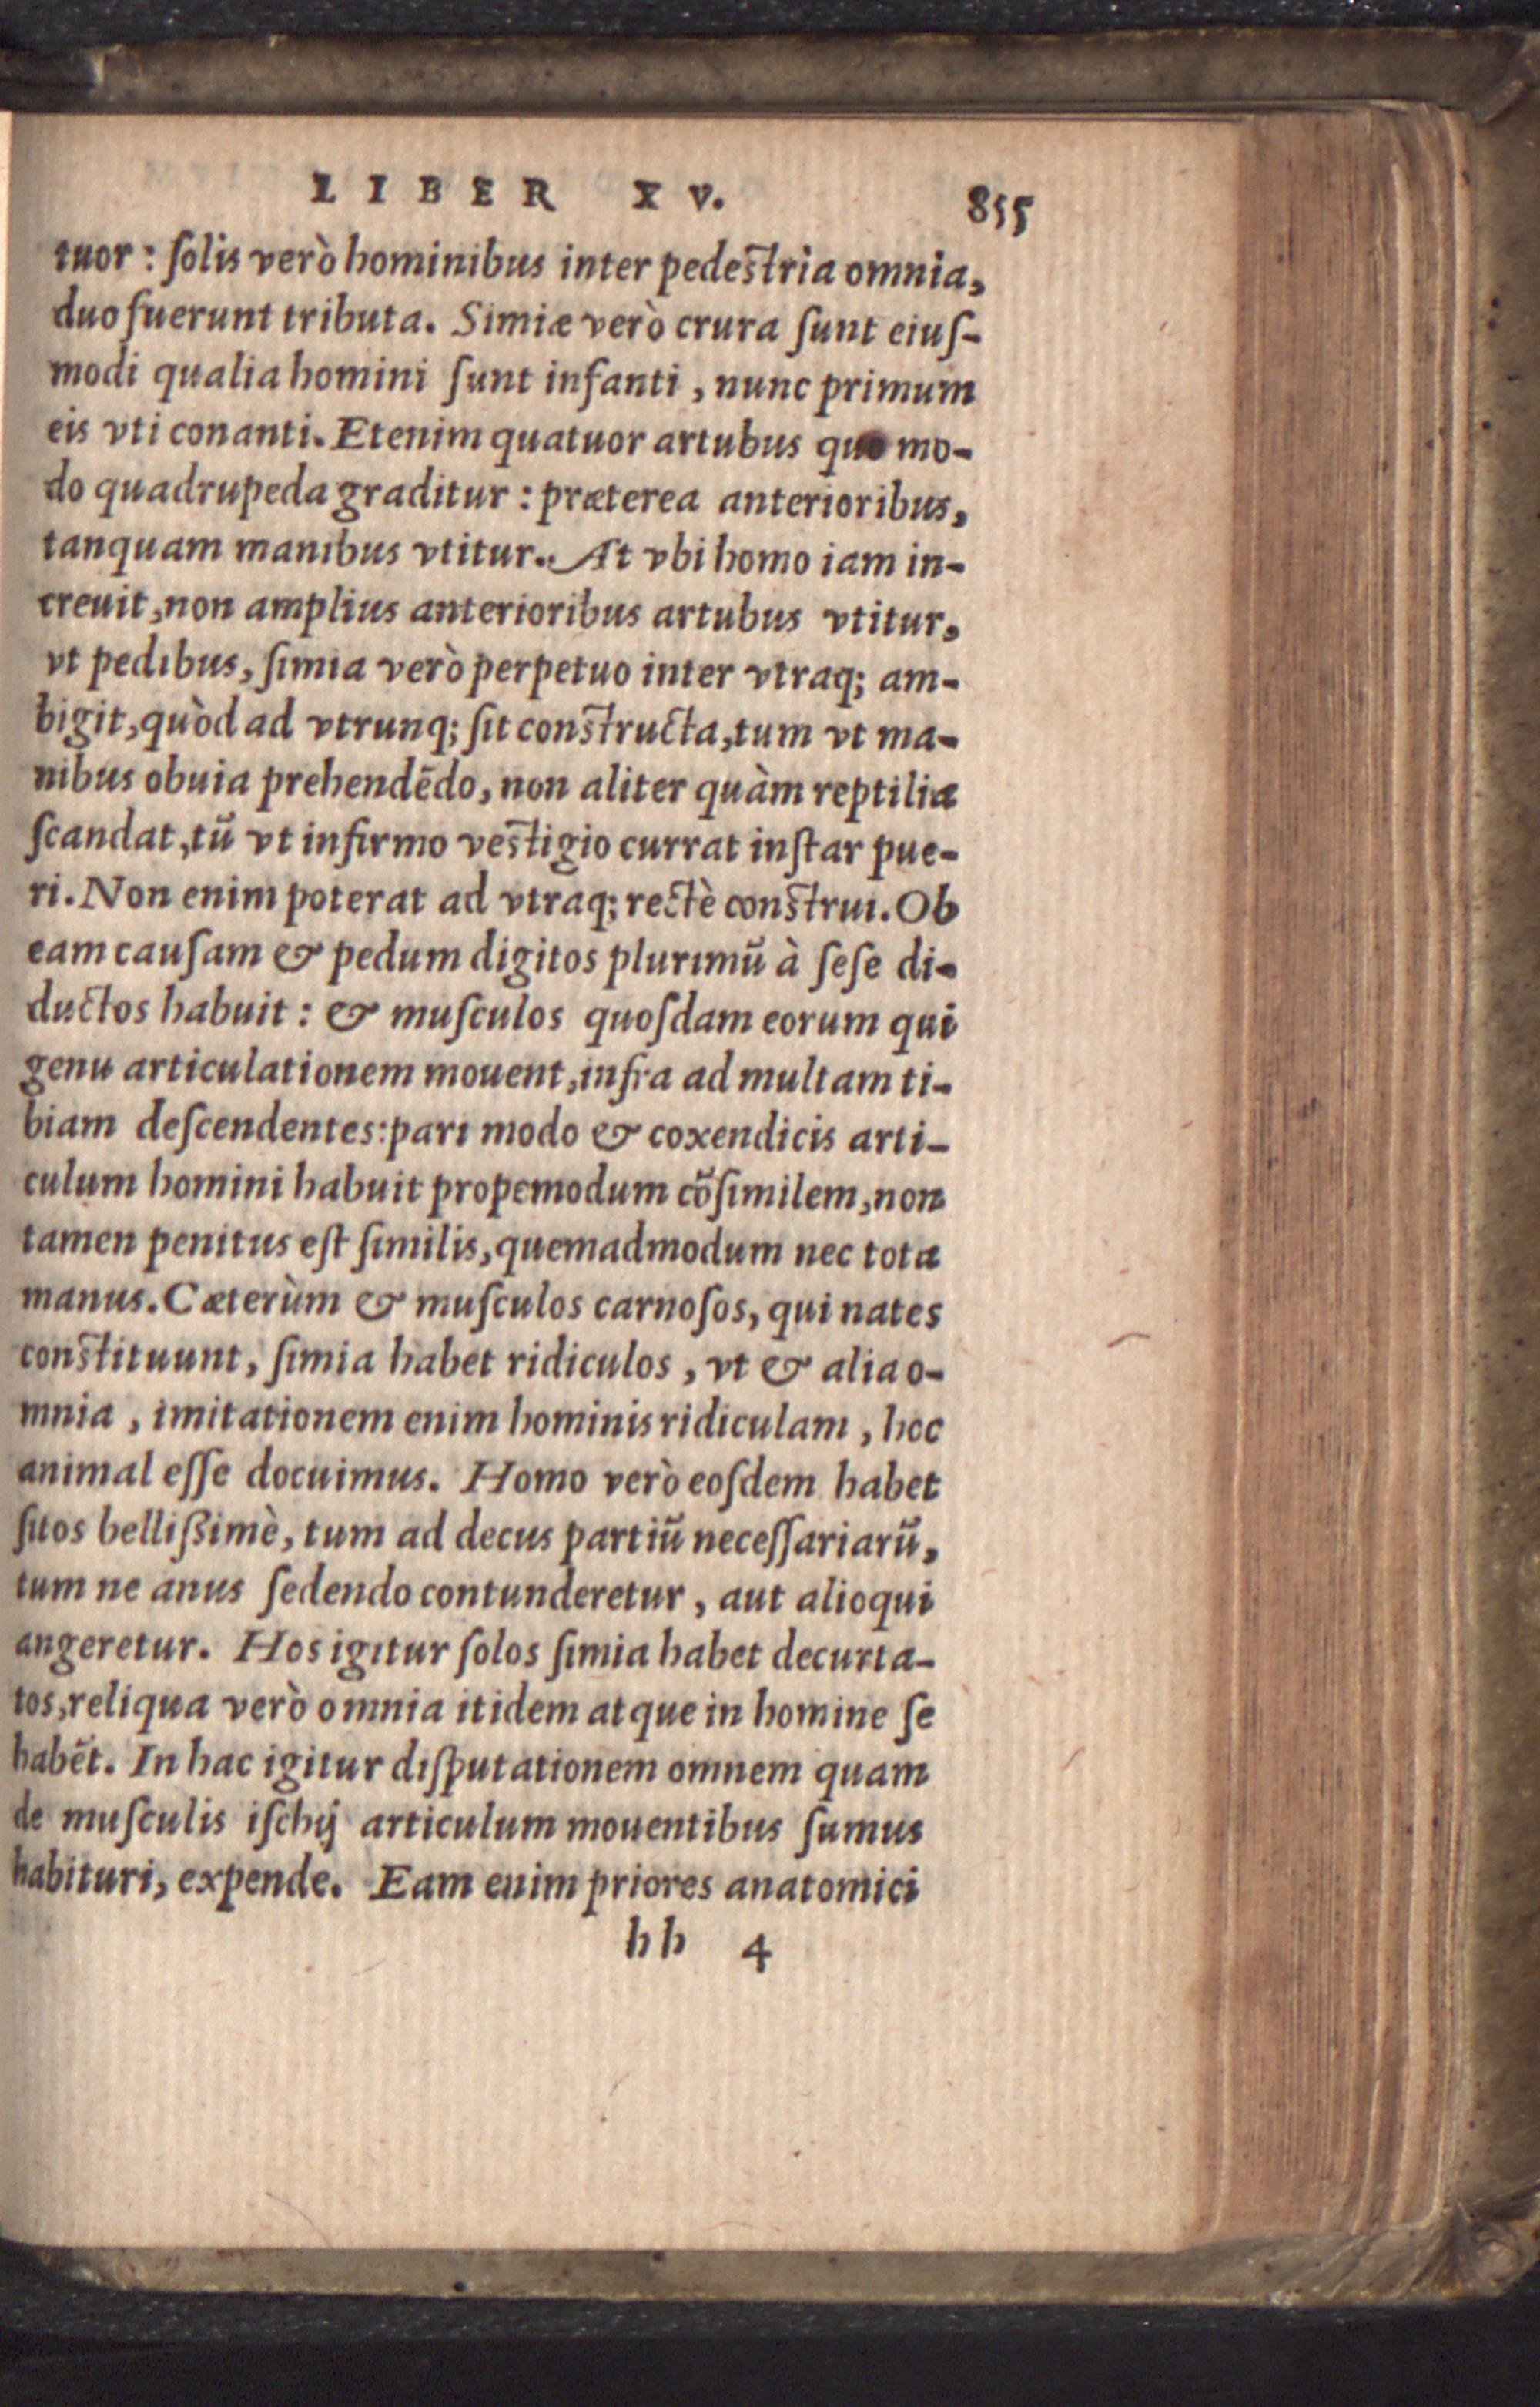 LIBER XV. 855
tuor : ſolis verò hominibus inter pedeſtria omnia,
duo fuerunt tributa. Simiæ verò crura ſunt eiuſ-
modi qualia homini ſunt infanti , nunc primum
eis vti conanti. Etenim quatuor artubus quo mo-
do quadrupeda graditur : præterea anterioribus,
tanquam manibus vtitur. At vbi homo iam in-
creuit, non amplius anterioribus artubus vtitur,
vt pedibus, ſimia verò perpetuo inter vtraq; am-
bigit, quòd ad vtrunq; ſit conſtructa, tum vt ma-
nibus obuia prehendēdo, non aliter quàm reptilia
ſcandat, tū vt infirmo veſtigio currat inſtar pue-
ri. Non enim poterat ad vtraq; rectè conſtrui. Ob
eam cauſam & pedum digitos plurimū à ſeſe di-
ductos habuit : & muſculos quoſdam eorum qui
genu articulationem mouent, infra ad multam ti-
biam deſcendentes: pari modo & coxendicis arti-
culum homini habuit propemodum cōſimilem, non
tamen penitus eſt ſimilis, quemadmodum nec tota
manus. Cæterùm & muſculos carnoſos, qui nates
conſtituunt, ſimia habet ridiculos , vt & alia o-
mnia , imitationem enim hominis ridiculam , hoc
animal eſſe docuimus. Homo verò eoſdem habet
ſitos belliſsimè, tum ad decus partiū neceſſariarū,
tum ne anus ſedendo contunderetur , aut alioqui
angeretur. Hos igitur ſolos ſimia habet decurta-
tos, reliqua verò omnia itidem atque in homine ſe
habēt. In hac igitur diſputationem omnem quam
de muſculis iſchij articulum mouentibus ſumus
habituri, expende. Eam enim priores anatomici
hh 4